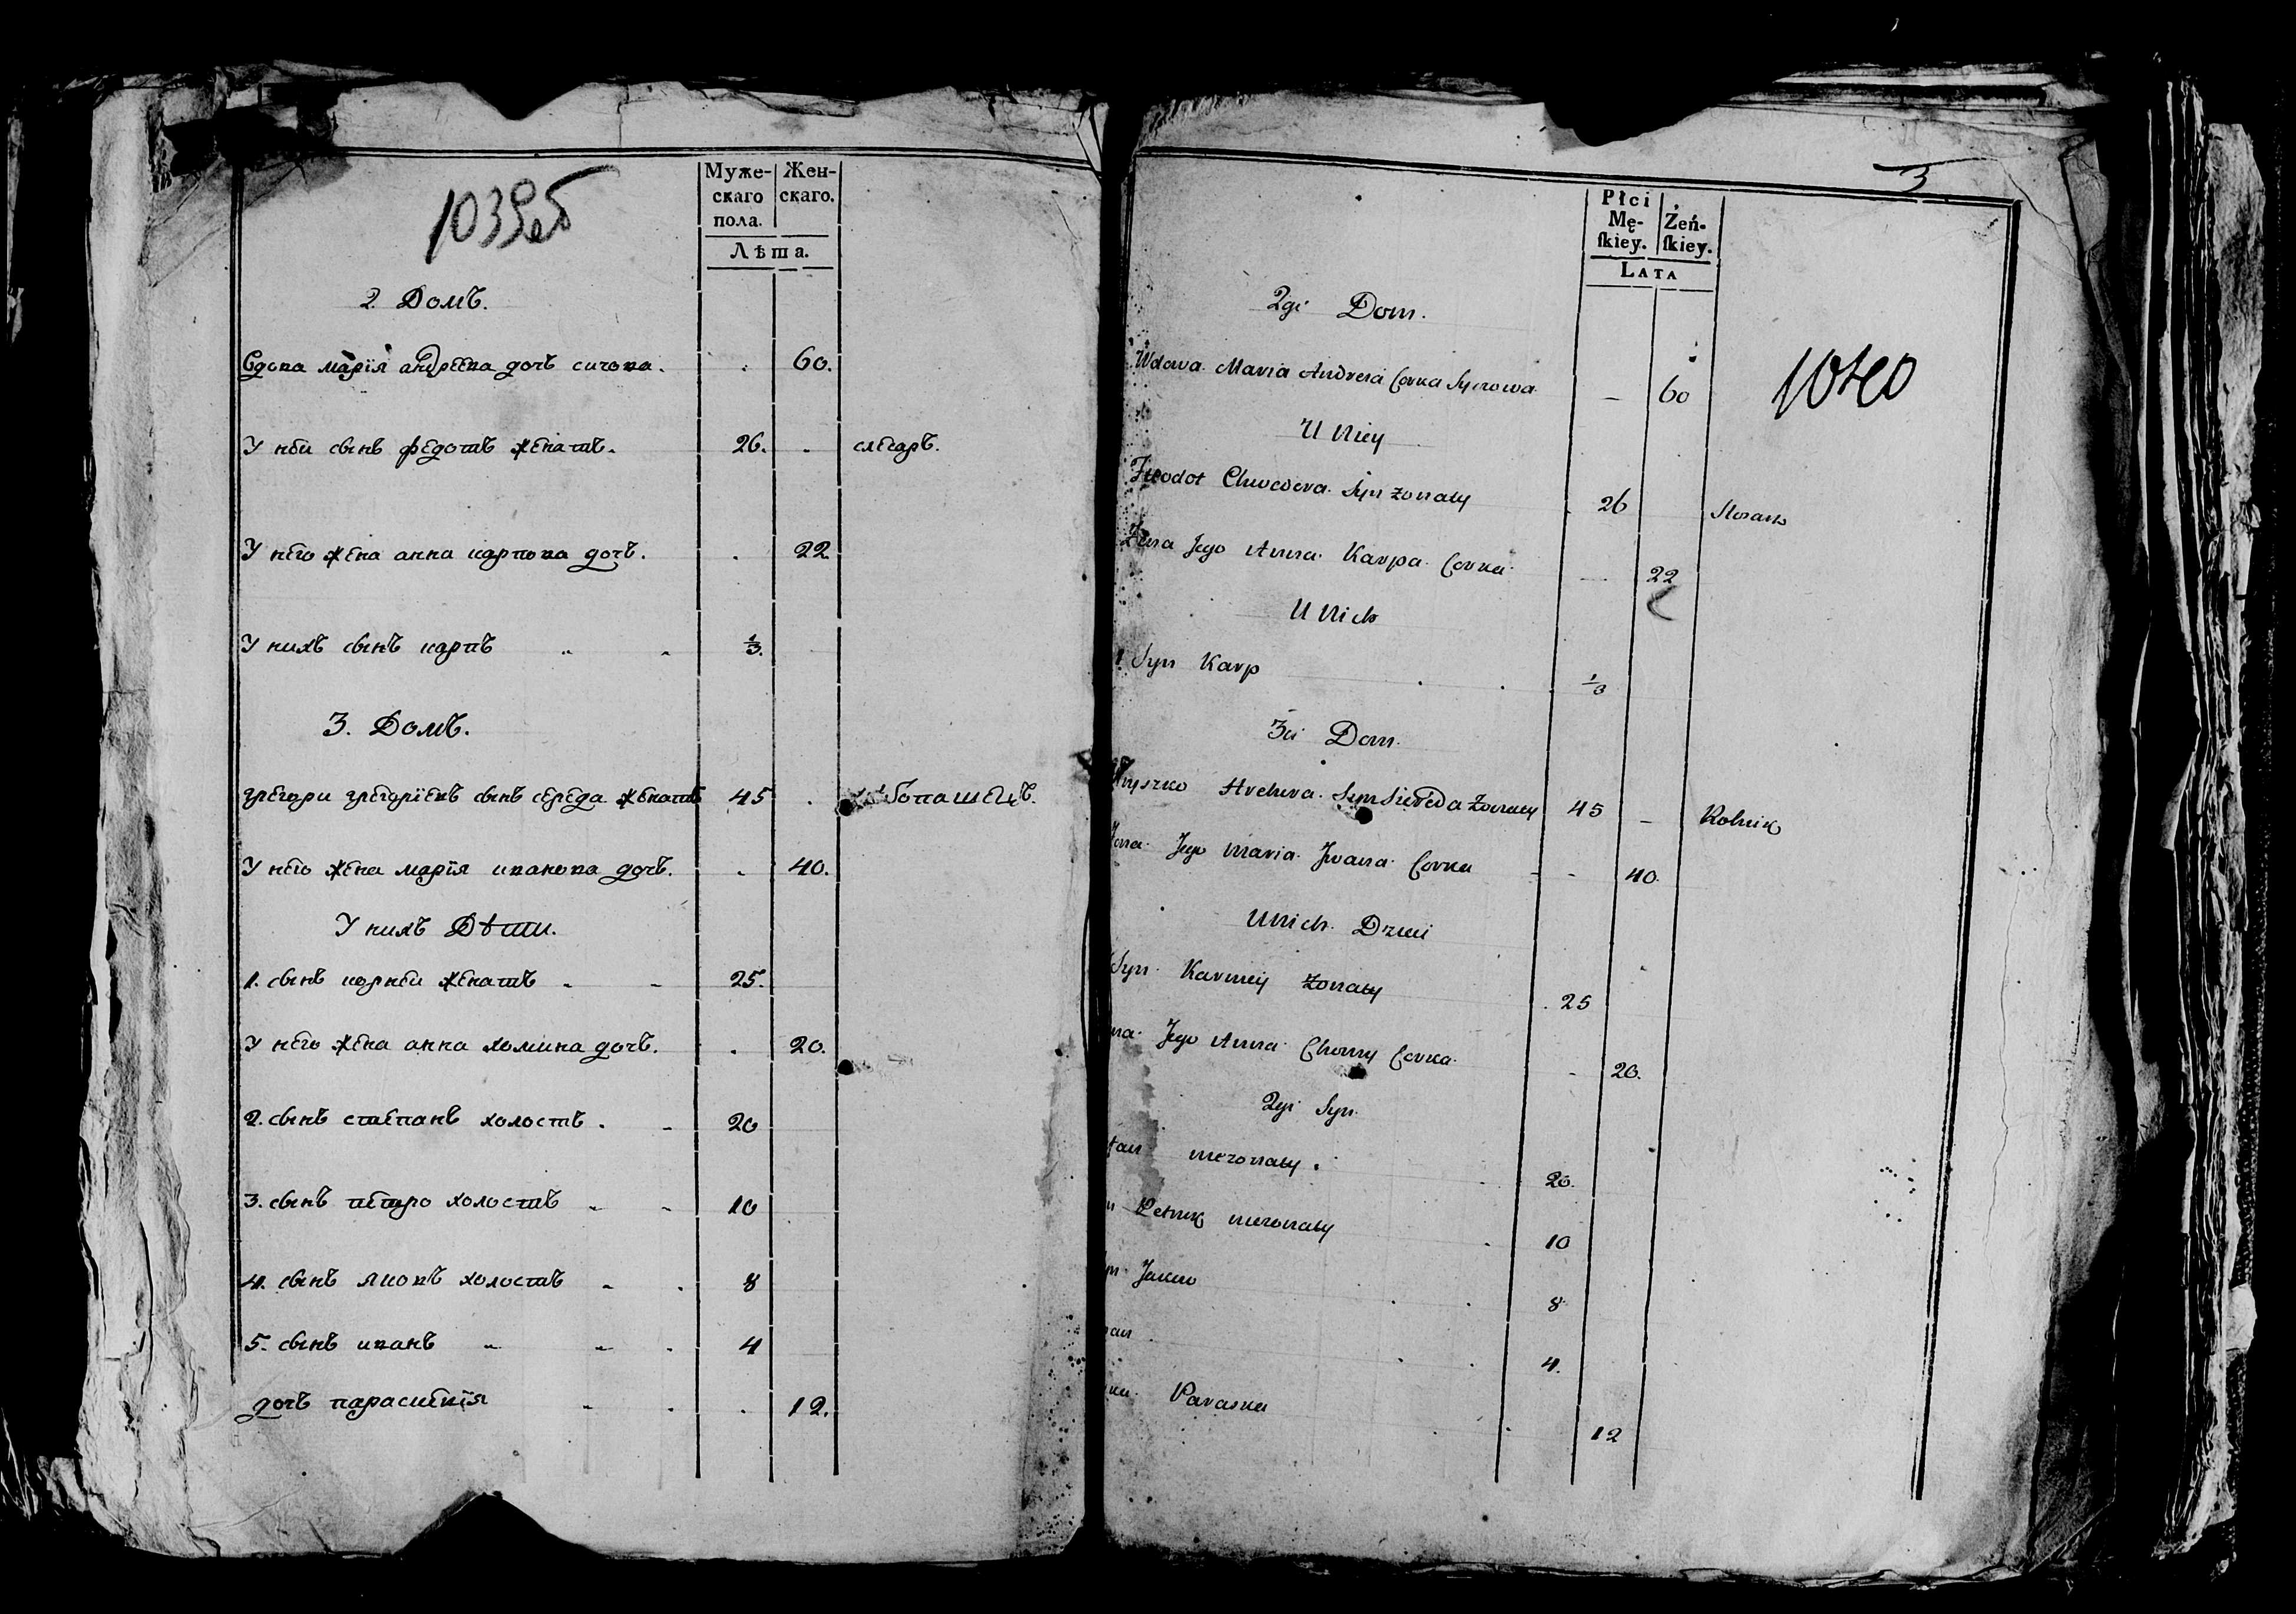 1039об
Муже-
скаго
пола.
Жен-
скаго.
Лѣта.
2. Домъ.
Вдова марїя андреева дочъ сичова. 60.
У неи сынъ федотъ женатъ. 26. слесаръ.
У него жена анна карпова дочъ. 22.
У нихъ сынъ карпъ 1/3.
3. Домъ.
грегори грегорїевъ сынъ середа женатъ 45
У него жена марїя иванова дочъ. 40.
У нихъ Дѣти.
1. сынъ корнеи женатъ 25.
У него жена анна хомина дочъ. 20.
2. сынъ степанъ холостъ. 20
3. сынъ петро холостъ 10
4. сынъ яковъ холостъ 8
5. сынъ иванъ 4
дочъ параскевїя 12.
3
Płci
Mę-
ſkiey.
Żeń-
ſkiey.
LATA
1040
2gi Dom.
Wdowa Maria Andreia Corka Syczowa 60
U Niey
Fteodot Chwedera Syn żonaty 26
Żona Jego Anna Karpa Corka 22
U Nich
1. Syn Karp 1/3
3ci Dom.
Hryszko Syn Sereda żonaty 45 Rolnik
Jego Maria Jwana Corka 40.
U Nich Dzieci
Syn Karniey żonaty 25
Jego Anna Chomy Corka 20.
2gi Syn
nieżonaty. 20.
Petruk nieżonaty 10
Jakow 8
4.
Paraska 12